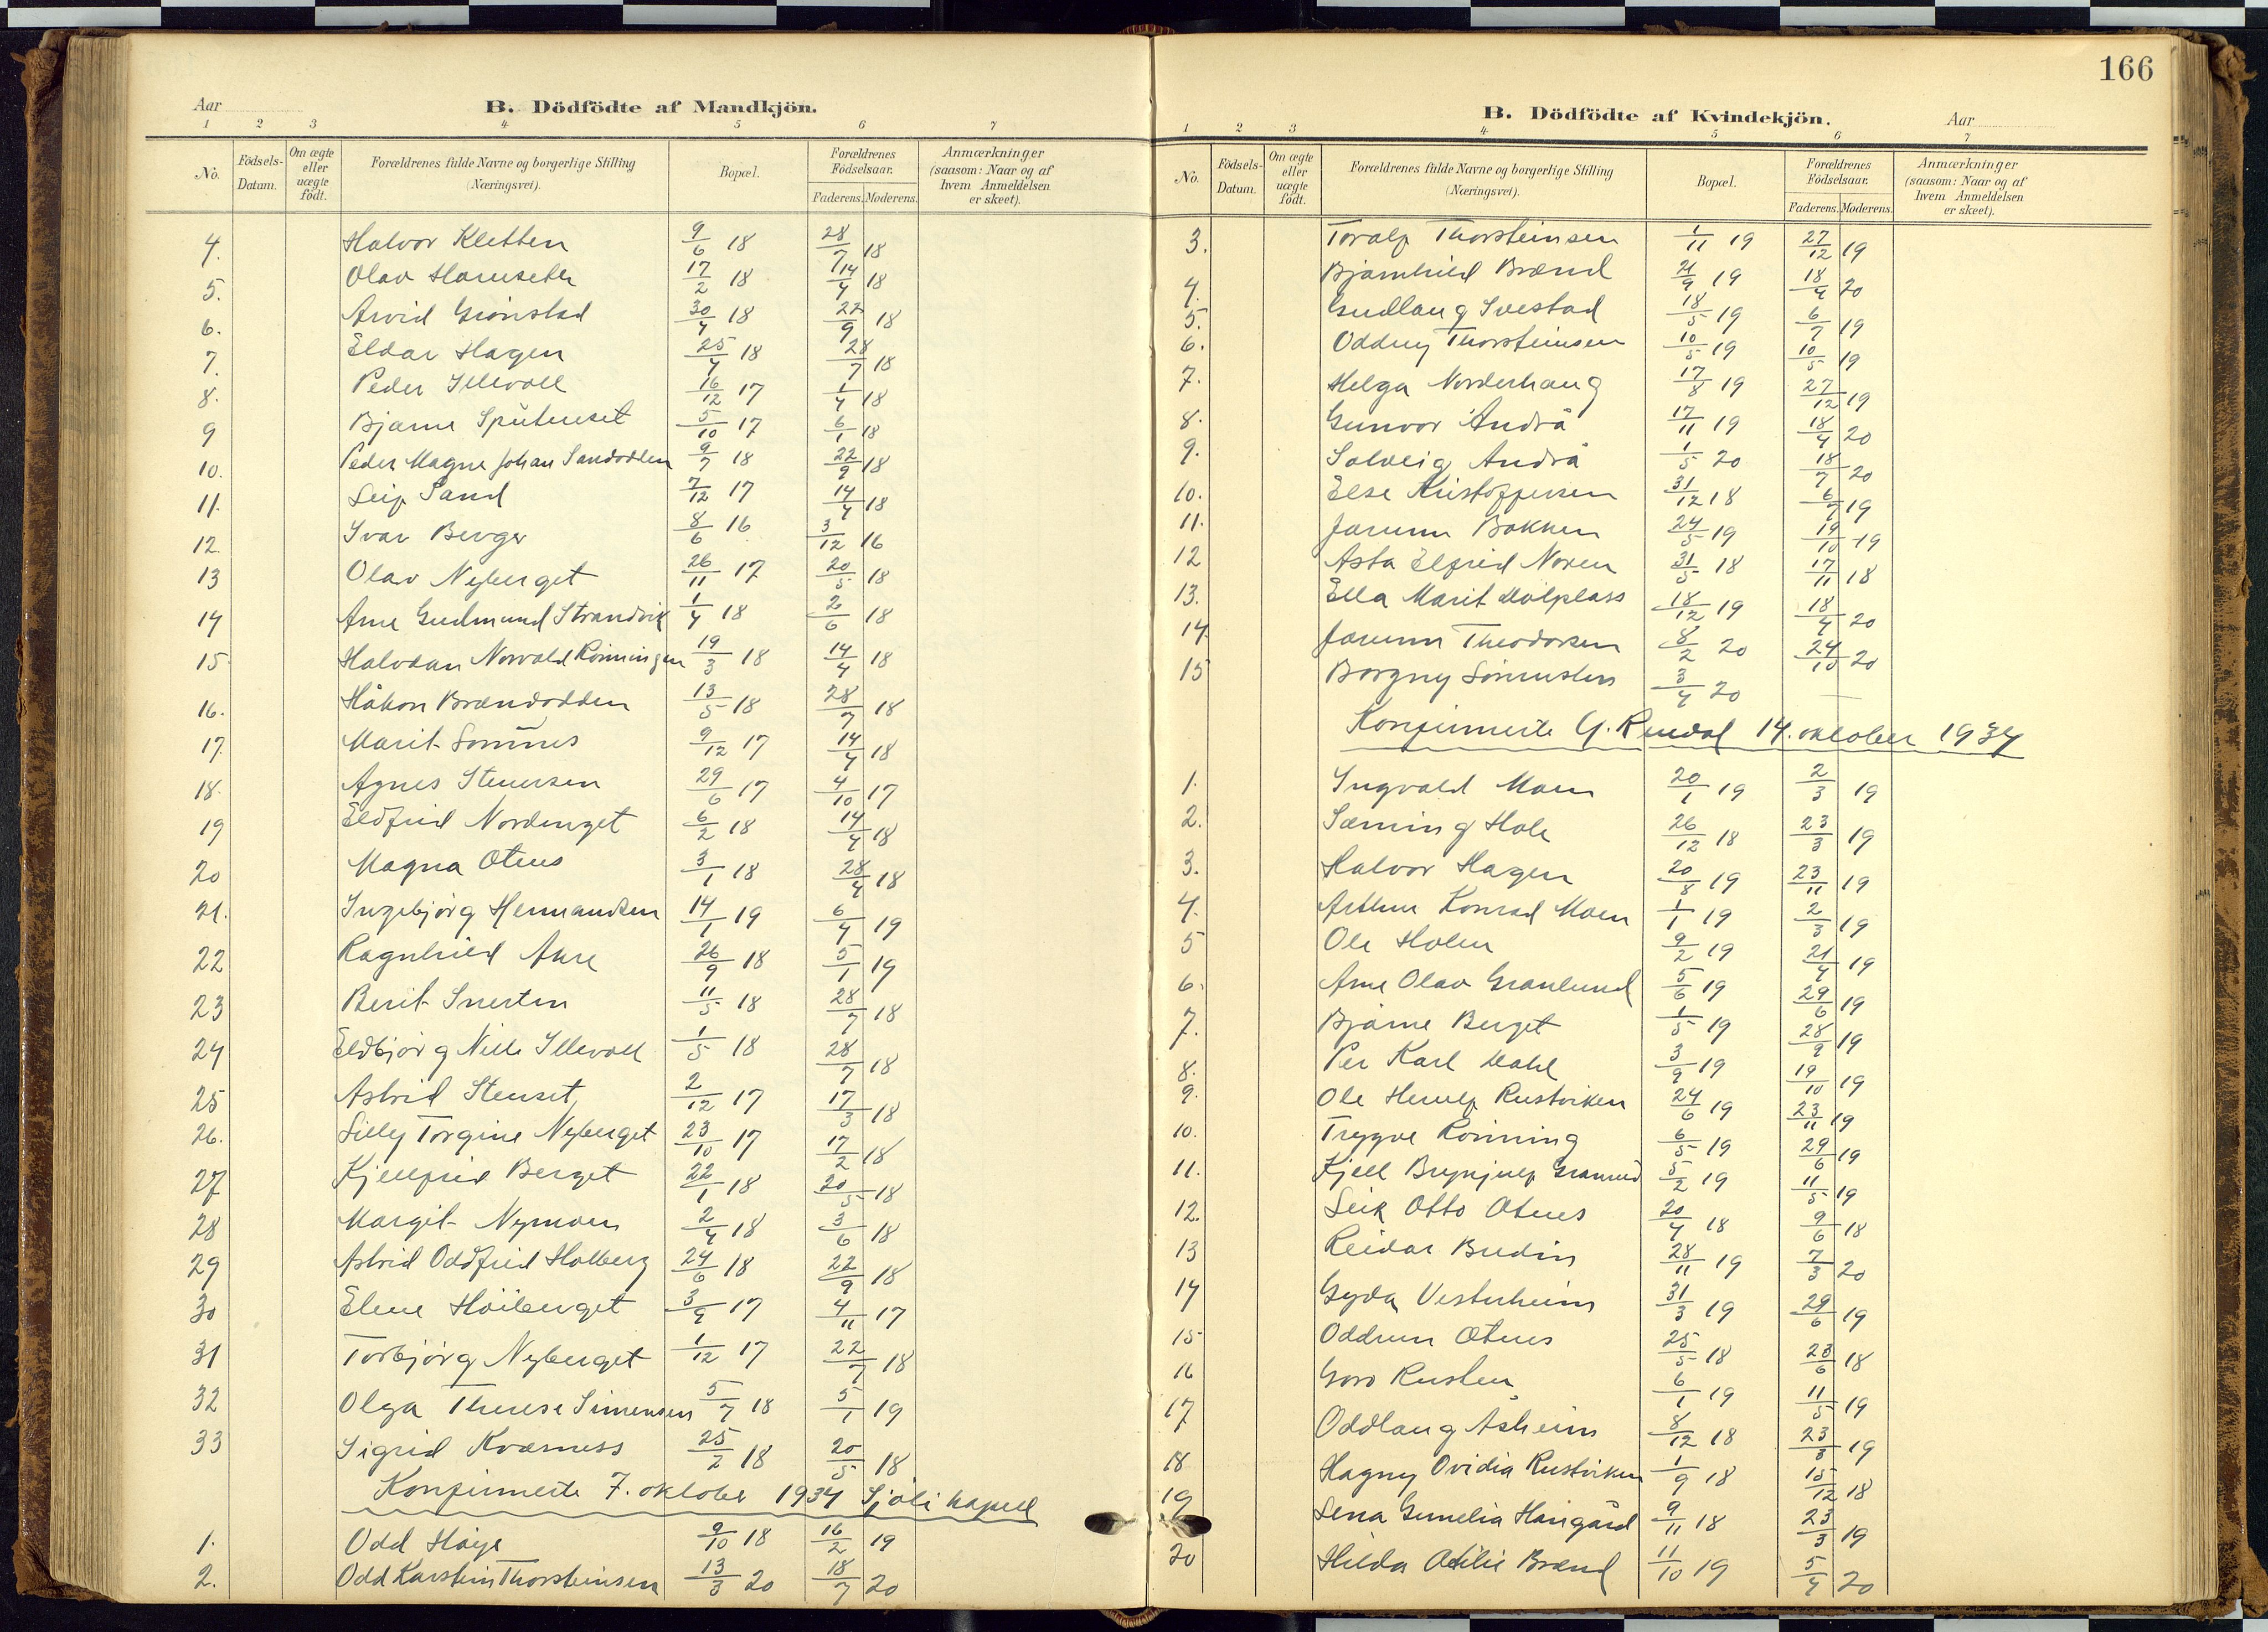 Aar
B. Dödfödte af Mandkjön.
1 2 3 4 5 6 7
No. Födsels-Datum. Om ægte eller uægte födt. Forældrenes fulde Navne og borgerlige Stilling (Næringsvei). Bopæl. Forældrenes Födselsaar. Faderens. Moderens. Anmærkninger (saasom: Naar og af hvem Anmeldelsen er skeet).
4. Halvor Kletten 9/6 18 28/7 18
5. Olav Harseth 17/2 18 14/4 18
6. Arvid Grönstad 30/4 18 22/9 18
7. Eldar Hagen 25/4 18 28/7 18
8. Peder Illevoll 16/12 17 1/4 18
9 Bjarne 5/10 17 6/1 18
10. Peder Magne Johan Sandodden 9/7 18 22/9 18
11. Leif Sand 7/12 17 14/4 18
12. Ivar Berger 8/6 16 3/12 16
13 Olav Nyberget 26/11 17 20/5 18
14 Arne Gudmund Strandvik 1/4 18 2/6 18
15 Halvdan Norvald Rönningen 19/3 18 14/4 18
16. Håkon Brændodden 13/5 18 28/7 18
17. Marit Lomnes 9/12 17 14/4 18
18. Agnes Stenersen 29/6 17 4/10 17
19 Eldfrid Nordenget 6/2 18 14/4 18
20 Magna Otnes 3/1 18 28/4 18
21. Ingebjörg Hermandsen 14/1 19 6/4 19
22 Ragnhild Akre 26/9 18 5/1 19
23 Berit Snerten 11/5 18 28/7 18
24 Eldbjörg Nelli Illevoll 1/5 18 28/7 18
25 Astrid Stenset 2/12 17 17/3 18
26. Lilly Torgine Nyberget 23/10 17 17/2 18
27 Kjellfrid Berget 22/1 18 20/5 18
28 Margit Nymoen 2/4 18 3/6 18
29 Astrid Oddfrid Holberg 24/6 18 22/9 18
30 Elene Höiberget 3/9 17 4/11 17
31 Torbjörg Nyberget 1/12 17 22/7 18
32 Olga Therese Simensen 5/7 18 5/1 19
33 Sigrid Kværness 25/2 18 20/5 18
Konfirmerte 7. oktober 1934 Sjöli kapell
1. Odd Höye 9/10 18 16/2 19
2. Odd Karstein Thorsteinsen 13/3 20 18/7 20
166
B. Dödfödte af Kvindekjön.
Aar
1 2 3 4 5 6 7
No. Födsels-Datum. Om ægte eller uægte födt. Forældrenes fulde Navne og borgerlige Stilling (Næringsvei). Bopæl. Forældrenes Födselsaar. Faderens. Moderens. Anmærkninger (saasom: Naar og af hvem Anmeldelsen er skeet).
3. Toralf Thorsteinsen 1/11 19 27/12 19
4. Bjarnhild Brænd 21/9 19 18/4 20
5. Gudlaug Svestad 18/5 19 6/7 19
6. Oddny Thorsteinsen 10/5 19 10/5 19
7. Helga Norderhaug 17/8 19 27/12 19
8. Gunvor Andrå 17/11 19 18/4 20
9. Solveig Andrå 1/5 20 18/7 20
10. Else Kristoffersen 31/12 18 6/7 19
11. Jorunn Bakken 24/5 19 19/10 19
12 Asta Elfrid Noren 31/5 18 17/11 18
13. Ella Marit Dölplass 18/12 19 18/4 20
14. Jorunn Theodorsen 8/2 20 24/10 20
15 Borgny Lönnsten 3/4 20 —
Konfirmerte Y. Rendal 14. oktober 1934
1. Ingvald Moen 20/1 19 2/3 19
2. Sæming Hole 26/12 18 23/3 19
3. Halvor Hagen 20/8 19 23/11 19
4. Arthur Konrad Moen 1/1 19 2/3 19
5 Ole Holen 9/2 19 21/4 19
6. Arne Olav Granlund 5/6 19 29/6 19
7. Bjarne Berget 1/5 19 28/9 19
8. Per Karl Dahl 3/9 19 19/10 19
9. Ole Herulf Rustviken 24/6 19 23/11 19
10. Trygve Rönning 6/5 19 29/6 19
11. Kjell Brynjulf Granrud 5/2 19 11/5 19
12. Leik Otto Otnes 20/4 18 9/6 18
13 Reidar Bredin 28/11 19 7/3 20
14 Gyda Vesterheim 31/3 19 29/6 19
15 Oddrun Otnes 25/5 18 23/6 18
16 Goro Rusten 6/1 19 11/5 19
17 Oddlaug Åsheim 8/12 18 23/3 19
18 Hagny Ovidia Rustviken 1/9 18 15/12 18
19 Lena Gunelia Haugård 9/11 18 23/3 19
20 Hilda Otilie Brænd 11/10 19 5/4 20